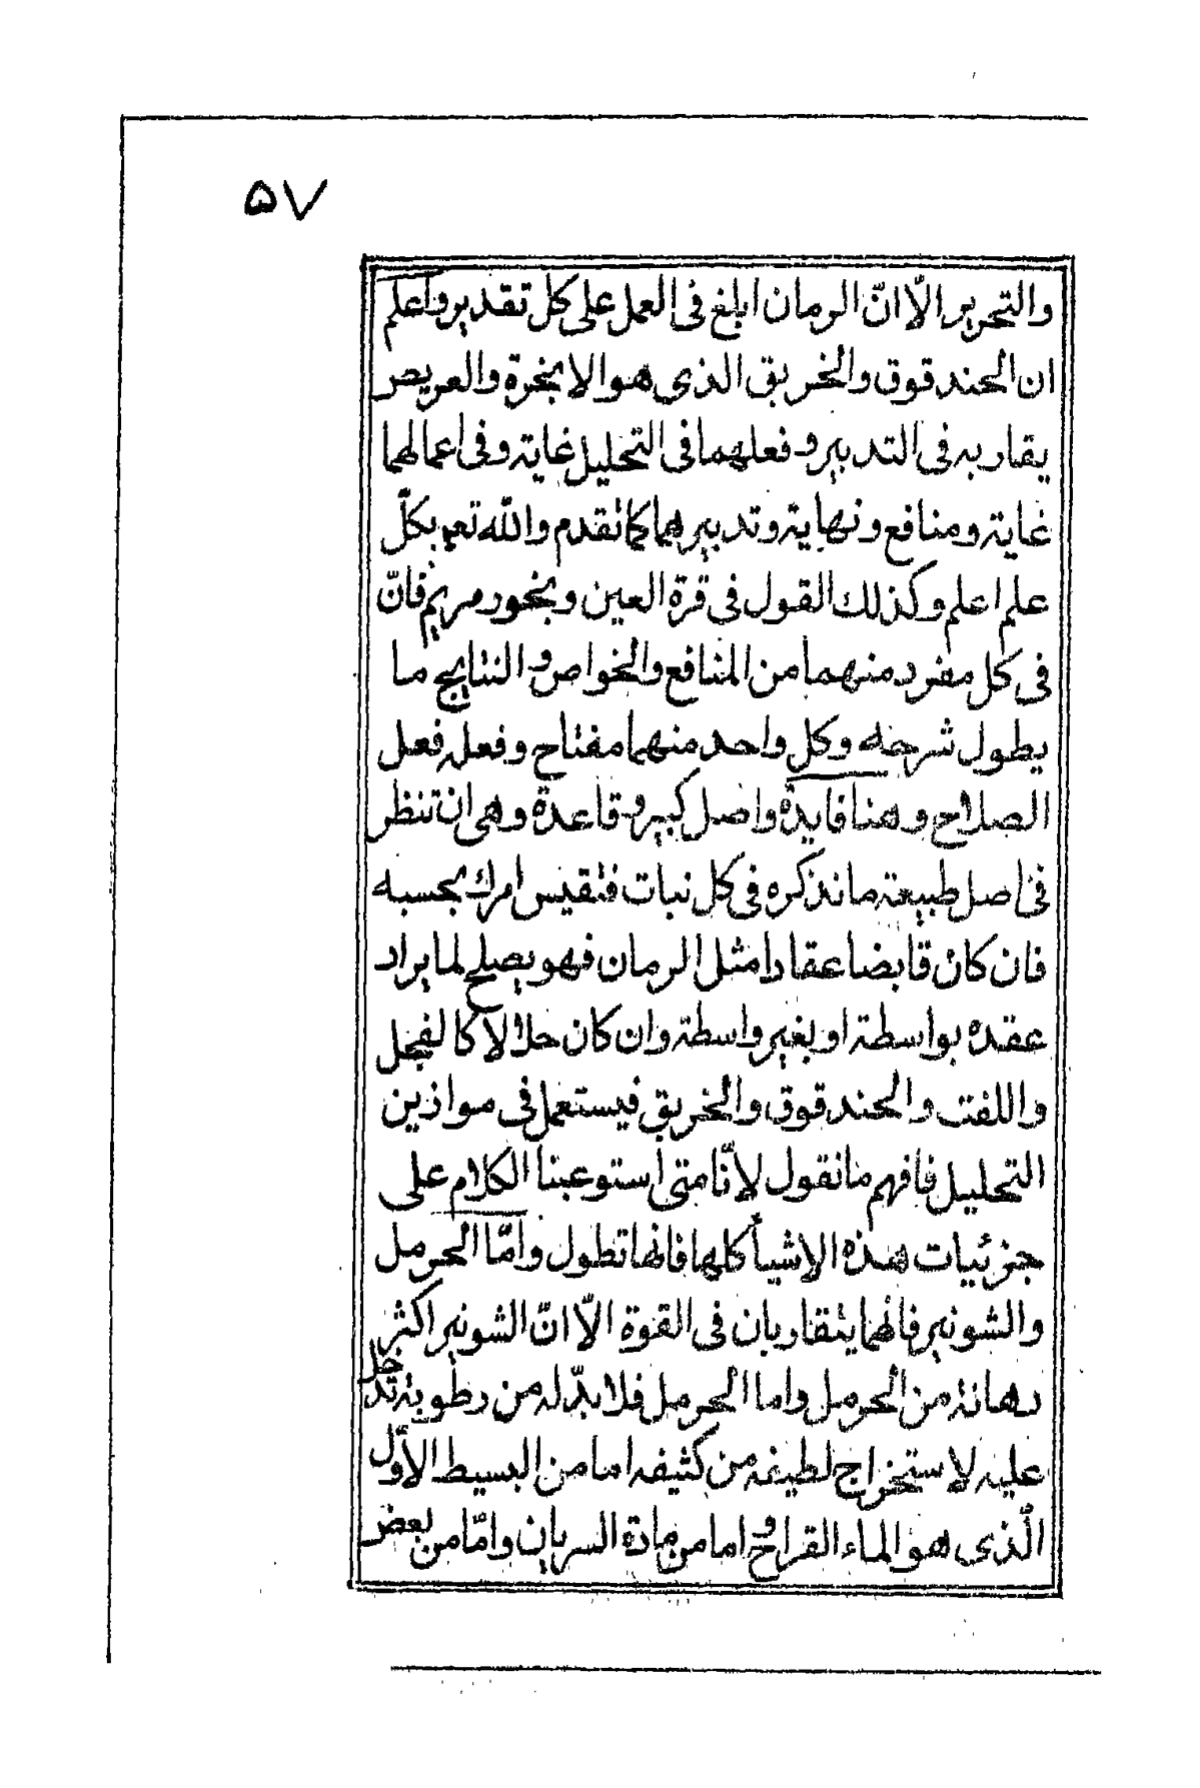 ۵۷
والتحرير الّا انّ الرمان ابلغ فى العمل على كل تقدير واعلم
ان الحندقوق والخربق الذى هو الابخرة والعريص
يقاربه فى التدبير وفعلهما فى التحليل غاية وفى اعمالهما
غاية ومنافع ونهاية وتدبيرهما كما تقدم والله تعم بكلّ
علم اعلم وكذلك القول فى قرة العين وبخور مريم فانّ
فى كل مفرد منهما من المنافع والخواص والنتايج ما
يطول شرحه وكل واحد منهما مفتاح وفعله فعل
الصلاح وهنا فايدة واصل كبير وقاعدة وهى ان تنظر
فى اصل طبيعة ما نذكره فى كل نبات فتقيس امرك بحسبه
فان كان قابضا عقادا مثل الرمان فهو يصلح لما يراد
عقده بواسطة او بغير واسطة وان كان حلالا كالفجل
واللفت والحندقوق والخربق فيستعمل فى موازين
التحليل فافهم ما نقول لانّا متى استوعبنا الكلام على
جزئيات هذه الاشيأ كلها فانها تطول وامّا الحرمل
والشونيز فانهما يتقاربان فى القوة الّا انّ الشونيز اكثر
دهانة من الحرمل واما الحرمل فلا بدّ له من رطوبة تدخل
عليه لاستخراج لطيفه من كثيفه اما من البسيط الأول
الّذى هو الماء القراح واما من مادة السريان وامّا من بعض